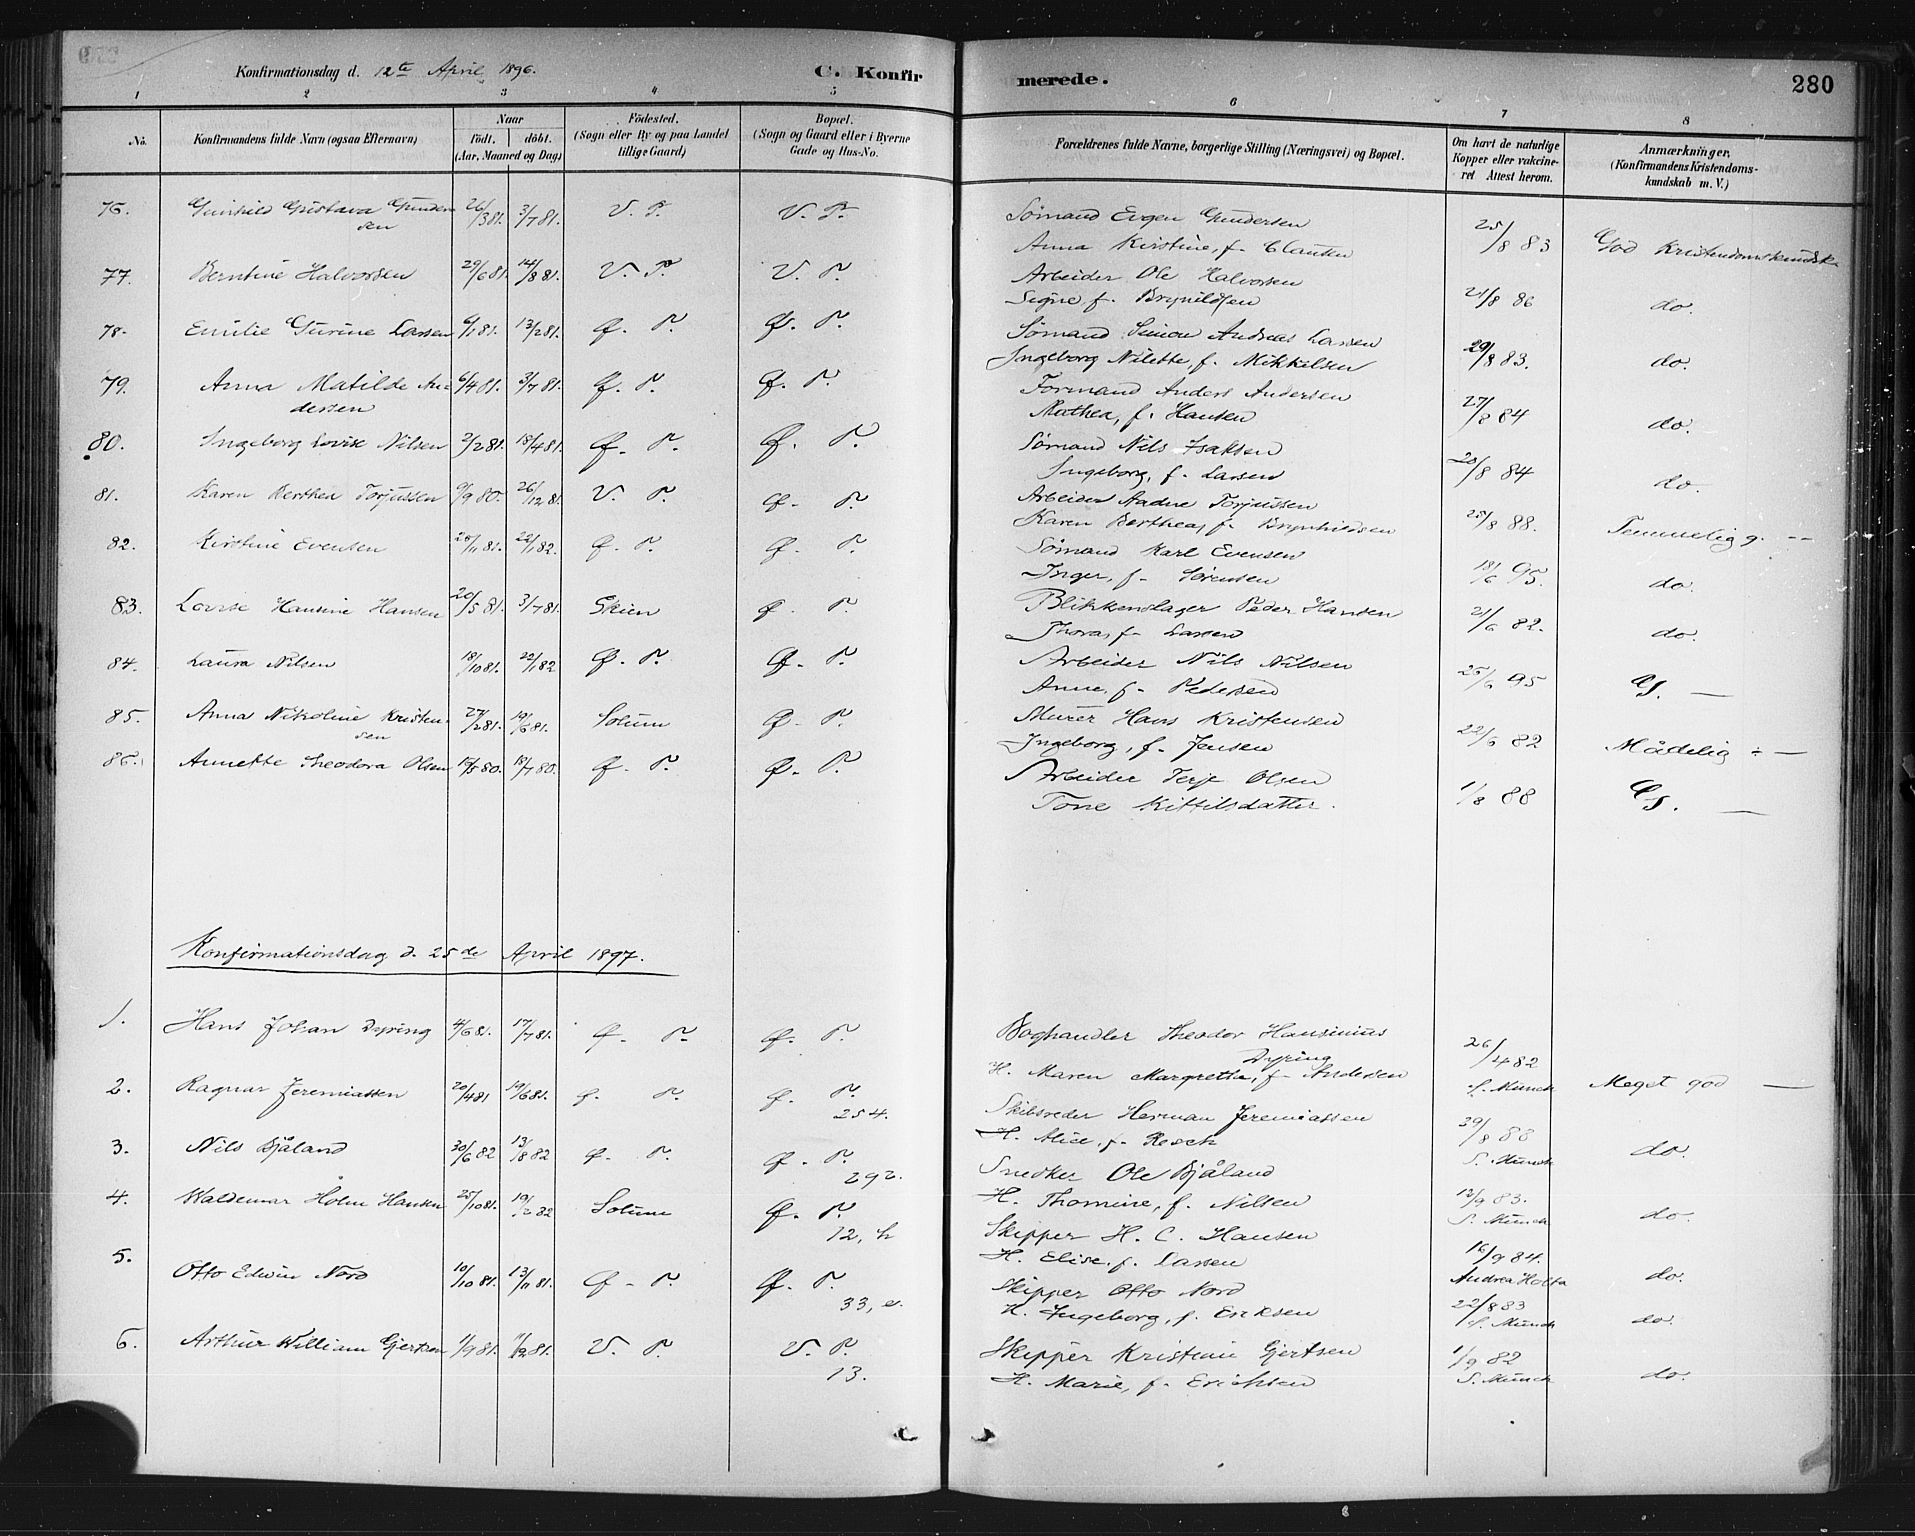 Konfirmationsdag d. 12te April 1896. C. Konfirmerede. 280
1 2 3 4 5 6 7 8
No. Konfirmandens fulde Navn (ogsaa Efternavn) Naar født, døbt. (Aar, Maaned og Dag) Fødested. (Sogn eller By og paa Landet tillige Gaard) Bopæl. (Sogn og Gaard eller i Byerne Gade og Hus-No. Forældrenes fulde Navne, borgerlige Stilling (Næringsvei) og Bopæl. Om havt de naturlige Kopper eller vakcineret Attest herom. Anmærkninger, (Konfirmandens Kristendomskundskab m. V.)
76. Gunhild Gustava Gundersen 26/3 81. 3/7 81. V. P. V. P. Sømand Evgen Gundersen
Anna Kirstine, f. Clausen 25/8 83 God Kristendomskundsk.
77. Berntine Halvorsen 29/6 81. 14/8 81. V. P. V. P. Arbeider Ole Halvorsen
Signe f. Brynildsen 21/8 86 do.
78. Emilie Gurine Larsen 6/1 81. 13/2 81. Ø. P. Ø. P. Sømand Simon Andreas Larsen
Ingeborg Nilette, f. Mikkelsen 29/8 83. do.
79. Anna Matilde Andersen 6/4 81. 3/7 81. Ø. P. Ø. P. Formand Anders Andersen
Mathea, f. Hansen 27/8 84 do.
80. Ingeborg Lovise Nilsen 2/2 81. 18/4 81. Ø. P. Ø. P. Sømand Nils Isaksen
Ingeborg, f. Larsen 28/8 84 do.
81. Karen Berthea Torjussen 9/9 80. 26/12 81. V. P. Ø. P. Arbeider Aadne Torjussen
Karen Berthea, f. Brynhildsen 25/8 88. Temmelig g. --
82. Kirstine Evensen 28/11 81. 22/1 82. Ø. P. Ø. P. Sømand Karl Evensen
Inger, f. Sørensen 18/6 95. do.
83. Lovise Hansine Hansen 20/5 81. 3/7 81. Skien Ø. P. Blikkenslager Peder Hansen
Thora, f. Larsen 21/6 82. do.
84. Laura Nilsen 18/10 81. 22/1 82 Ø. P. Ø. P. Arbeider Nils Nilsen
Anne, f. Pedersen 25/6 95 G. —
85. Anna Nikoline Kristensen 27/2 81. 19/6 81. Solum Ø. P. Murer Hans Kristensen
Ingeborg, f. Jensen 22/6 82 Mådelig - —
86. Annette Theodora Olsen 18/7 80. Ø. P. Ø. P. Arbeider Terje Olsen
Tone Kittilsdatter. 1/8 88 G. —
Konfirmationsdag d. 25de April 1897.
1. Hans Johan Dyring 4/6 81. 17/7 81. Ø. P. Ø. P. Boghandler Theodor Hansinius Dyring
H. Maren Margrethe, f. Andersen 26/4 82 S. Munch Meget god —
2. Ragnar Jeremiassen 20/4 81 19/6 81. Ø. P. Ø. P. 254. Skibsreder Herman Jeremiassen
H. Alice, f. Resch 29/8 88 S. Munch do.
3. Nils Bjåland 30/6 82 13/8 82 Ø. P. Ø. P. 292. Snedker Ole Bjåland
H. Thomine, f. Nilsen 12/9 83. S. Munch do.
4. Waldemar Holm Hansen 25/10 81. 19/2 82 Solum Ø. P. 12, h Skipper H. C. Hansen
H. Elise, f. Larsen 16/9 84. Andrea Holta do.
5. Otto Edwin Nord 10/10 81. 13/11 81. Ø. P. Ø. P. 33, e. Skipper Otto Nord
H. Ingeborg, f. Eriksen 22/8 83 S. Munch do.
6. Arthur William Gjertsen 1/9 81. V. P. V. P. 13. Skipper Kristian Gjertsen
H. Marie, f. Erichsen 1/9 82 S. Munch do.